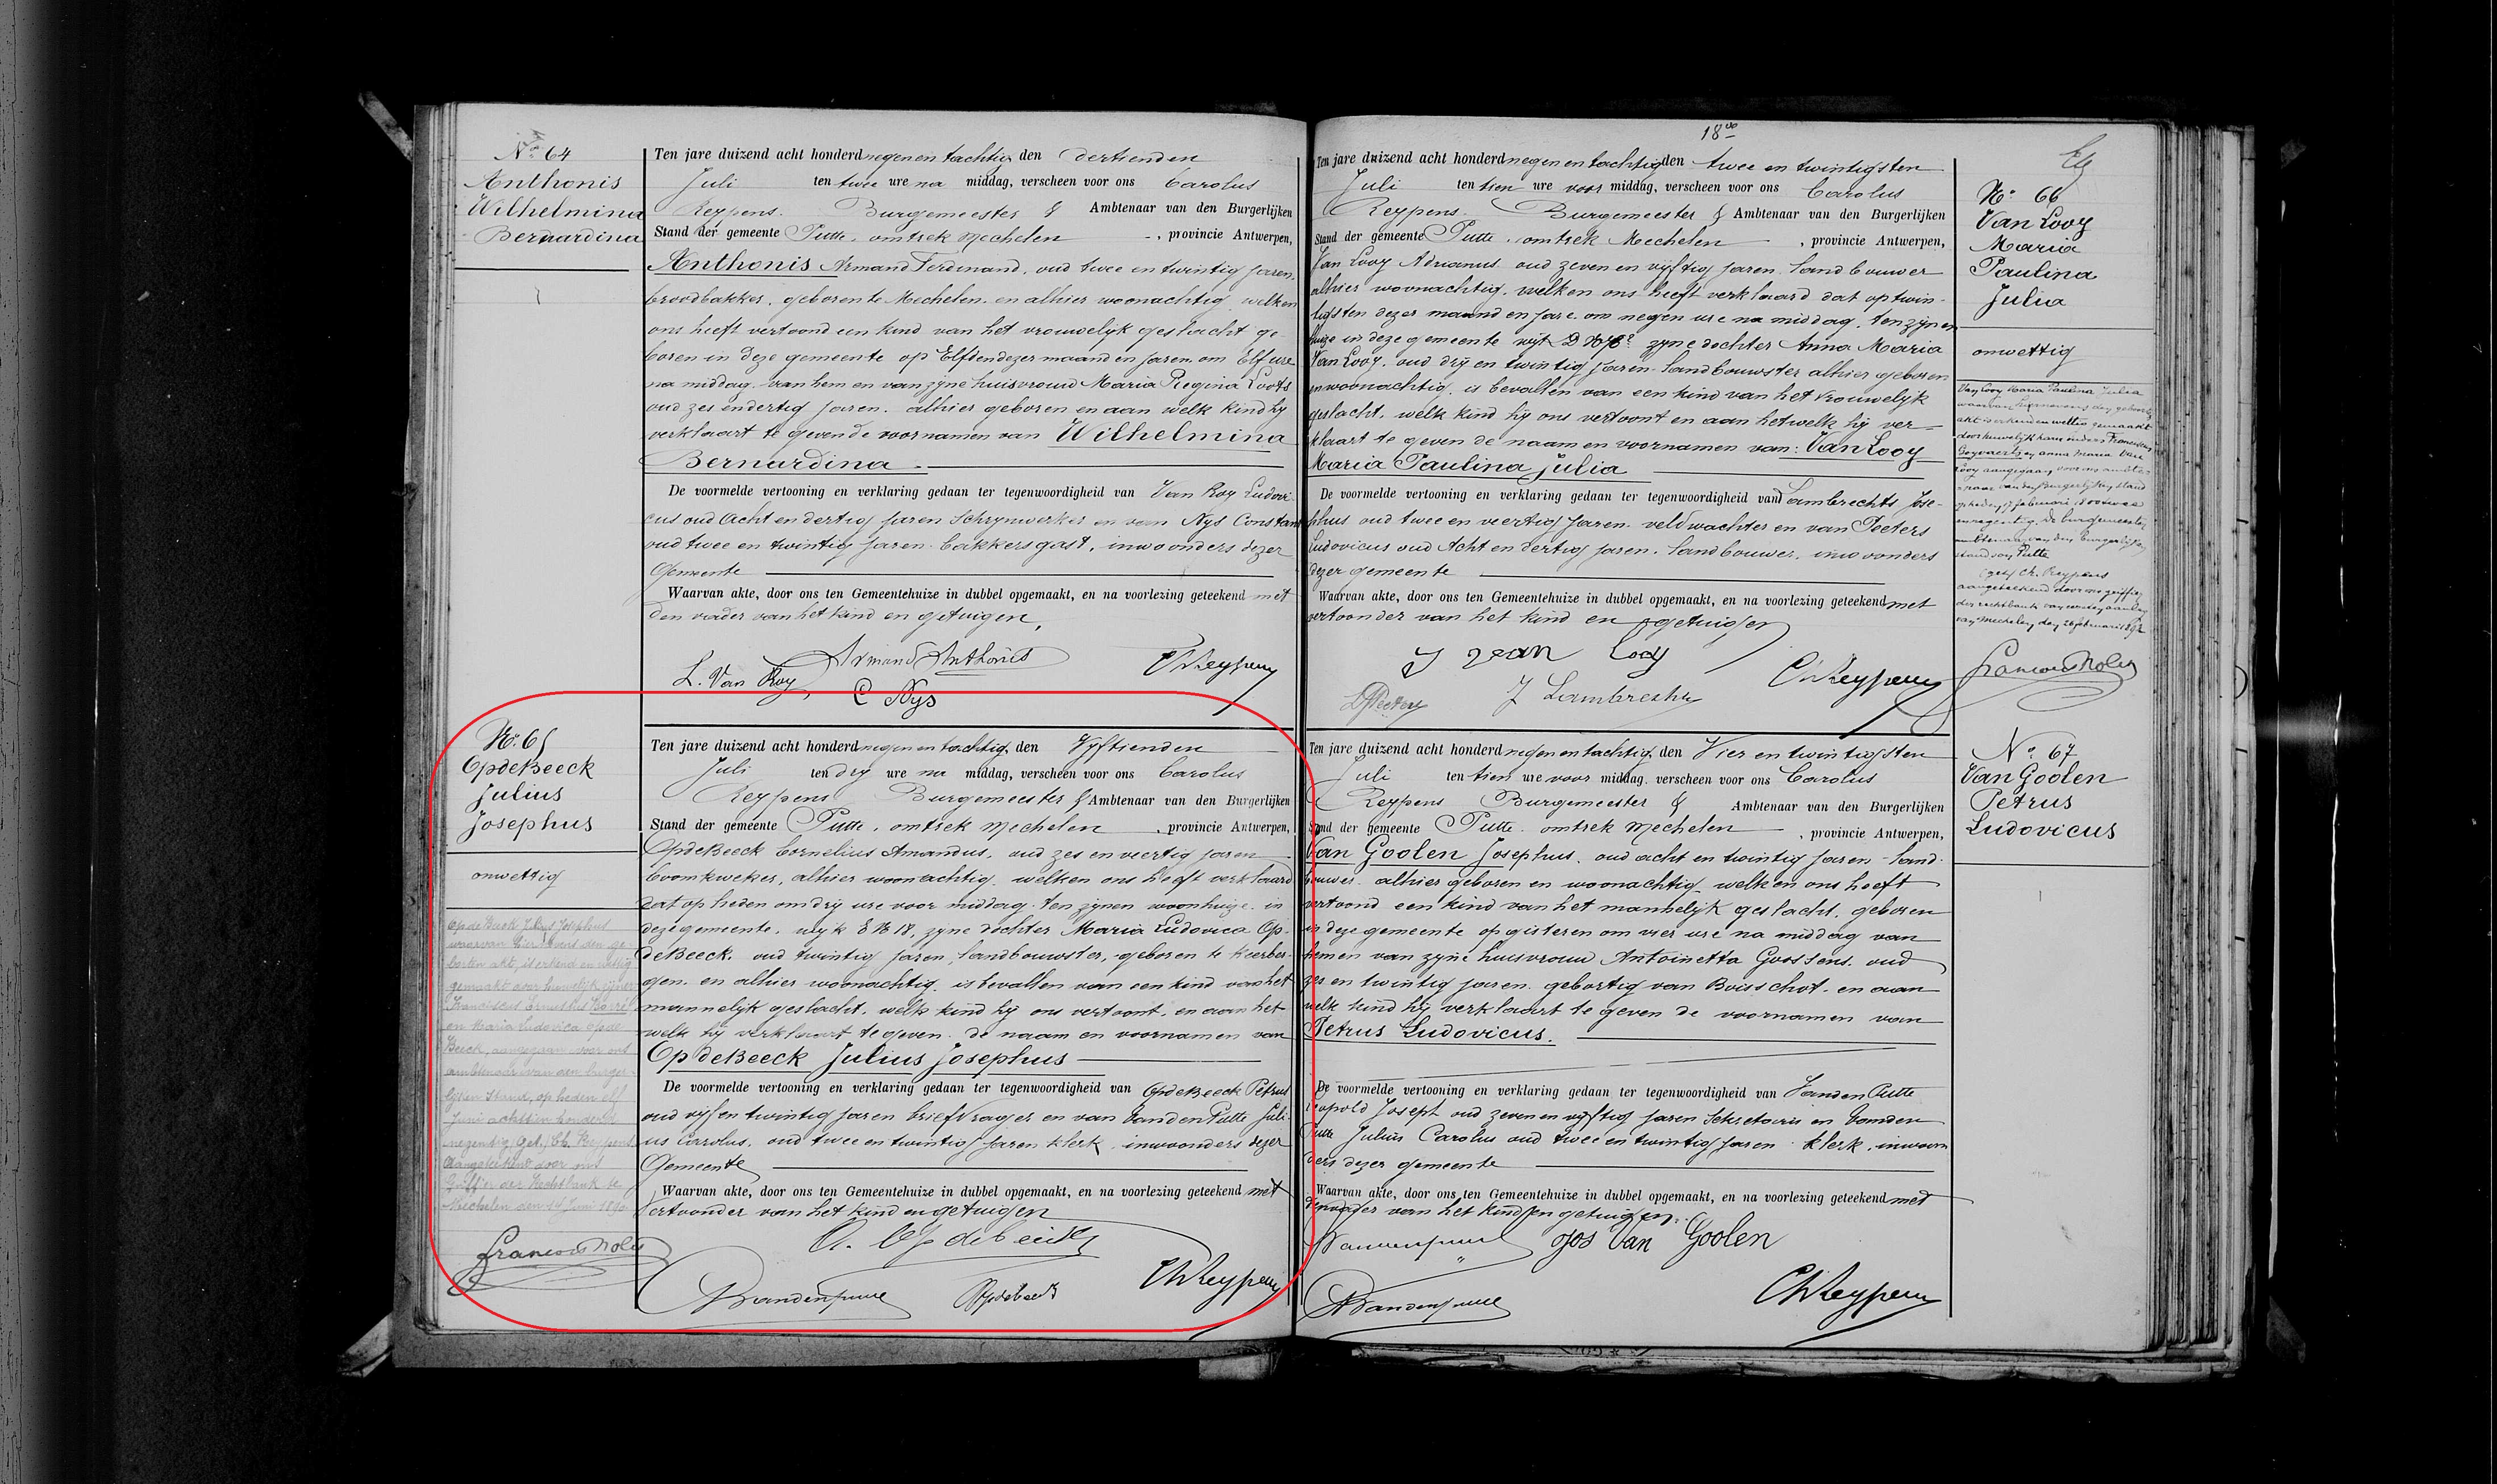 Nº 64
Anthonis
Wilhelmina
Bernardina
Ten jare duizend acht honderd negen en tachtig den dertienden
Juli ten twee ure na middag, verscheen voor ons Carolus
Reypens Burgemeester & Ambtenaar van den Burgerlijken
Stand der gemeente Putte, omtrek Mechelen, provincie Antwerpen,
Anthonis Armand Ferdinand, oud twee en twintig jaren,
broodbakker, geboren te Mechelen en alhier woonachtig welken
ons heeft vertoond een kind van het vrouwelijk geslacht ge-
boren in deze gemeente op Elfden dezer maand en jaren om Elf ure
na middag van hem en van zyne huisvrouw Maria Regina Loots
oud zes en dertig jaren. alhier geboren en aan welk kind hy
verklaart te geven de voornamen van Wilhelmina
Bernardina.
De voormelde vertooning en verklaring gedaan ter tegenwoordigheid van Van Roy Ludovi-
cus oud Acht en dertig jaren Schrynwerker en van Nys Constant
oud twee en twintig jaren bakkersgast, inwoonders dezer
Gemeente
Waarvan akte, door ons ten Gemeentehuize in dubbel opgemaakt, en na voorlezing geteekend met
den vader van het kind en getuigen,
Armand Anthonis
L. Van Roy
C Nys
Ch Reypens
Nº 65
OpdeBeeck
Julius
Josephus
onwettig
Op de Beeck Julius Josephus
waarvan hiernevens den ge-
boorten akt, is erkend en wettig
gemaakt door huwelijk zijner
Franciscus Ernestus
en Maria Ludovica Op de
Beeck, aangegaan voor ons
ambtenaar van den burger-
lijken stand, op heden elf
Juni achttien honderd
negentig. Get. Ch. Reypens
Aangeteekend door ons
Griffier der Rechtbank te
Mechelen den 14 Juni 1890
Francois Nolis
Ten jare duizend acht honderd negen en tachtig, den Vyftienden
Juli ten dry ure na middag, verscheen voor ons Carolus
Reypens Burgemeester & Ambtenaar van den Burgerlijken
Stand der gemeente Putte, omtrek Mechelen, provincie Antwerpen,
OpdeBeeck Cornelius Amandus, oud zes en veertig jaren
boomkweker, alhier woonachtig welken ons heeft verklaard
dat op heden om dry ure voor middag ten zynen woonhuize in
deze gemeente, wyk E Nº 18, zyne dochter Maria Ludovica Op-
deBeeck, oud twintig jaren, landbouwster, geboren te Keerber-
gen en alhier woonachtig is bevallen van een kind van het
mannelyk geslacht, welk kind hy ons vertoont, en aan het-
welk hy verklaart te geven de naam en voornamen van
OpdeBeeck Julius Josephus
De voormelde vertooning en verklaring gedaan ter tegenwoordigheid van OpdeBeeck Petrus
oud vyf en twintig jaren briefdrager en van Vanden Putte Juli-
us Carolus, oud twee en twintig jaren klerk, inwoonders dezer
Gemeente
Waarvan akte, door ons ten Gemeentehuize in dubbel opgemaakt, en na voorlezing geteekend met
Vertoonder van het kind en getuigen
Ch Reypens
18
Ten jare duizend acht honderd negen en tachtig den twee en twintigsten
Juli ten tien ure voor middag, verscheen voor ons Carolus
Reypens Burgemeester & Ambtenaar van den Burgerlijken
Stand der gemeente Putte, omtrek Mechelen, provincie Antwerpen,
Van Looy Adrianus oud zeven en vyftig jaren landbouwer
alhier woonachtig, welken ons heeft verklaard dat op twin-
tigsten dezer maand en jare om negen ure na middag, ten zijnen
huize in deze gemeente wijk D zyne dochter Anna Maria
Van Looy, oud dry en twintig jaren landbouwster alhier geboren
en woonachtig is bevallen van een kind van het vrouwelyk
geslacht, welk kind hy ons vertoont en aan hetwelk hy ver-
klaart te geven de naam en voornamen van: Van Looy
Maria Paulina Julia
De voormelde vertooning en verklaring gedaan ter tegenwoordigheid van Lambrechts Jose-
phus oud twee en veertig jaren veldwachter en van Peeters
Ludovicus oud Acht en dertig jaren, landbouwer, inwoonders
dezer gemeente
Waarvan akte, door ons ten Gemeentehuize in dubbel opgemaakt, en na voorlezing geteekend met
vertoonder van het kind en getuigen
J Lambrechts
Ch Reypens
Nº 66
Van Looy
Maria
Paulina
Julia
onwettig
Van Looy Maria Paulina Julia
waarvan hiernevens den geboorte
akt is erkend en wettig gemaakt
door huwelijk harer ouders Franciscus
Goyvaerts en Anna Maria Van
Looy aangegaan voor ons ambte-
naar van den Burgerlijken stand
op heden 17 februari 18
en negentig. De burgemeester
ambtenaar van den burgerlijken
stand van Putte
(get) Ch. Reypens
aangeteekend door ons griffier
der rechtbank van eersten aanleg
van Mechelen den 26 februari 1892
Francois Nolis
Ten jare duizend acht honderd negen en tachtig, den Vier en twintigsten
Juli ten tien ure voor middag, verscheen voor ons Carolus
Reypens Burgemeester & Ambtenaar van den Burgerlijken
Stand der gemeente Putte omtrek Mechelen, provincie Antwerpen,
Van Goolen Josephus, oud acht en twintig jaren land-
bouwer alhier geboren en woonachtig welken ons heeft
vertoond een kind van het mannelyk geslacht, geboren
in deze gemeente op gisteren om vier ure na middag van
hem en van zyne huisvrouw Antoinetta Goossens, oud
zes en twintig jaren, geboortig van Boisschot en aan
welk kind hy verklaart te geven de voornamen van
Petrus Ludovicus.
De voormelde vertooning en verklaring gedaan ter tegenwoordigheid van Vanden Putte
Leopold Joseph oud zeven en vyftig jaren Secretaris en Vanden
Putte Julius Carolus oud twee en twintig jaren klerk, inwoon-
ders dezer gemeente
Waarvan akte, door ons ten Gemeentehuize in dubbel opgemaakt, en na voorlezing geteekend met
den vader van het kind en getuigen.
Jos Van Goolen
Ch Reypens
Nº 67
Van Goolen
Petrus
Ludovicus